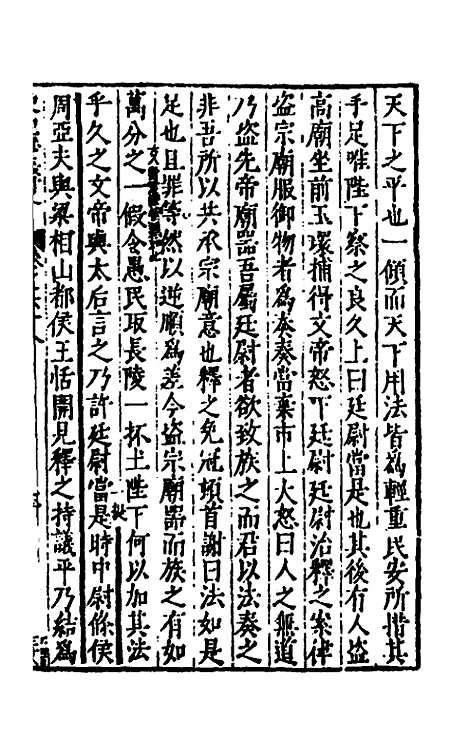 天下之平也一傾而天下用法皆爲輕重民安所措其
手足唯陛下察之良久上曰廷尉當是也其後有人盗
高廟坐前玉環捕得文帝怒下廷尉廷尉治釋之案律
盗宗廟服御物者爲本奏當棄市上大怒曰人之無道
乃盗先帝廟器吾屬廷尉者欲致族之而君以法奏之
非吾所以共承宗廟意也釋之免冠頓首謝曰法如是
足也且罪等然以逆順爲差今盗宗廟器而族之有如
萬分之一假令愚民取長陵一抔土陛下何以加其法
乎久之文帝與太后言之乃許廷尉當是時中尉條侯
周亞夫與梁相山都侯王恬開見釋之持議平乃結爲